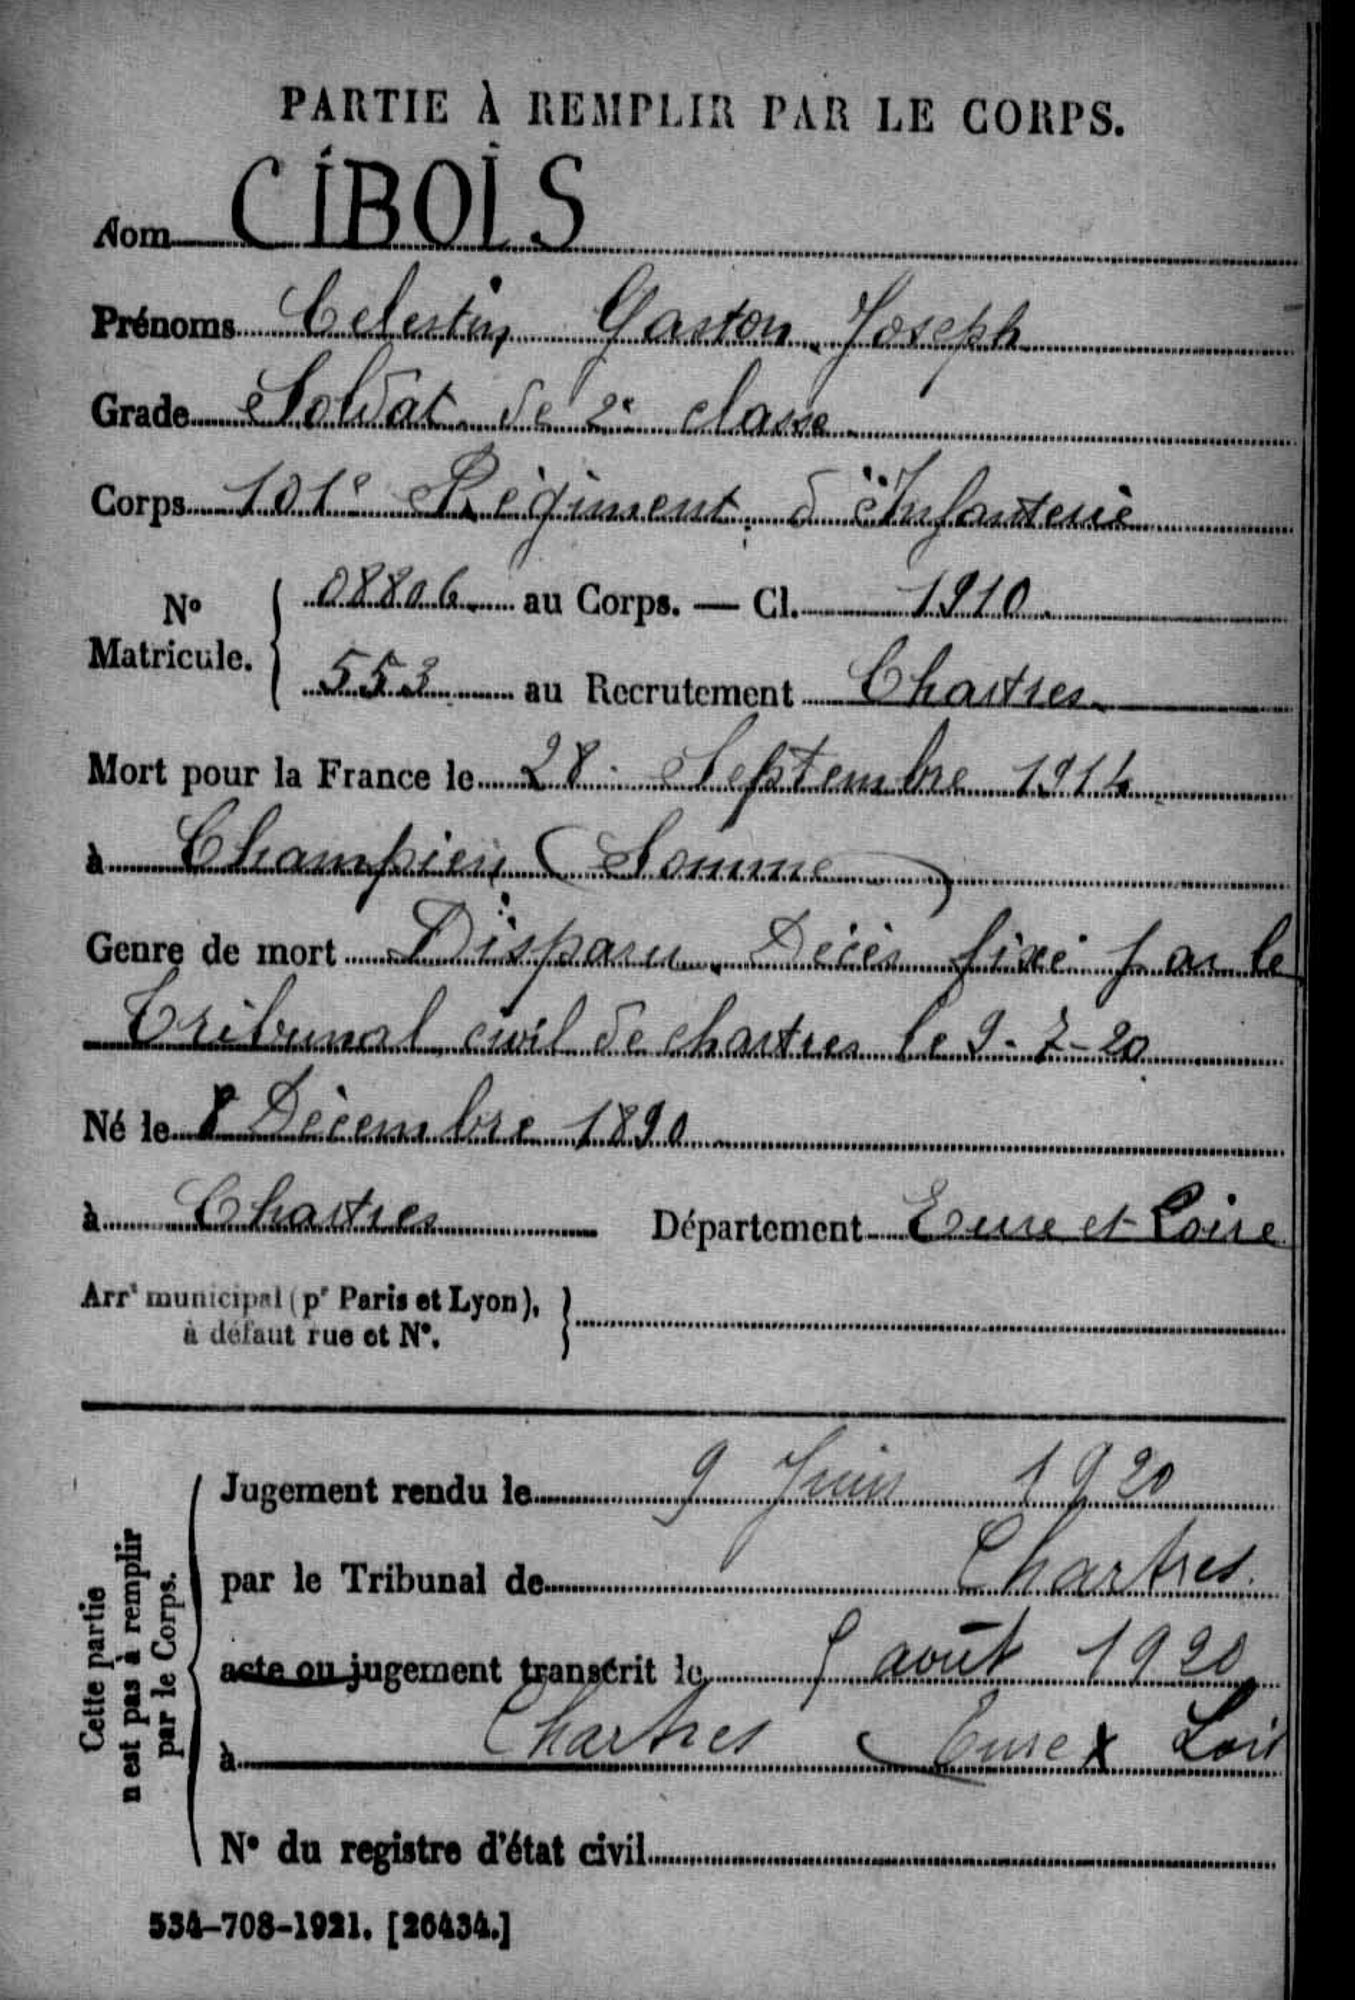 PARTIE À REMPLIR PAR LE CORPS.
Nom CIBOIS
Prénoms Celestin Gaston Joseph
Grade Soldat de 2e classe
Corps 101e Régiment d'Infanterie
No Matricule. 08806 au Corps. — Cl. 1910
553 au Recrutement Chartres
Mort pour la France le 28 Septembre 1914
à Champien (Somme)
Genre de mort Disparu. Décès fixé par le
Tribunal civil de chartres le 9-7-20
Né le 8 Décembre 1890
à Chartres Département Eure et Loire
Arrt municipal (pr Paris et Lyon),
à défaut rue et No.
Cette partie
n'est pas à remplir
par le Corps.
Jugement rendu le 9 Juin 1920
par le Tribunal de Chartres.
acte ou jugement transcrit le août 1920
à Chartres Eure & Loir
No du registre d'état civil
534-708-1921. [26434.]